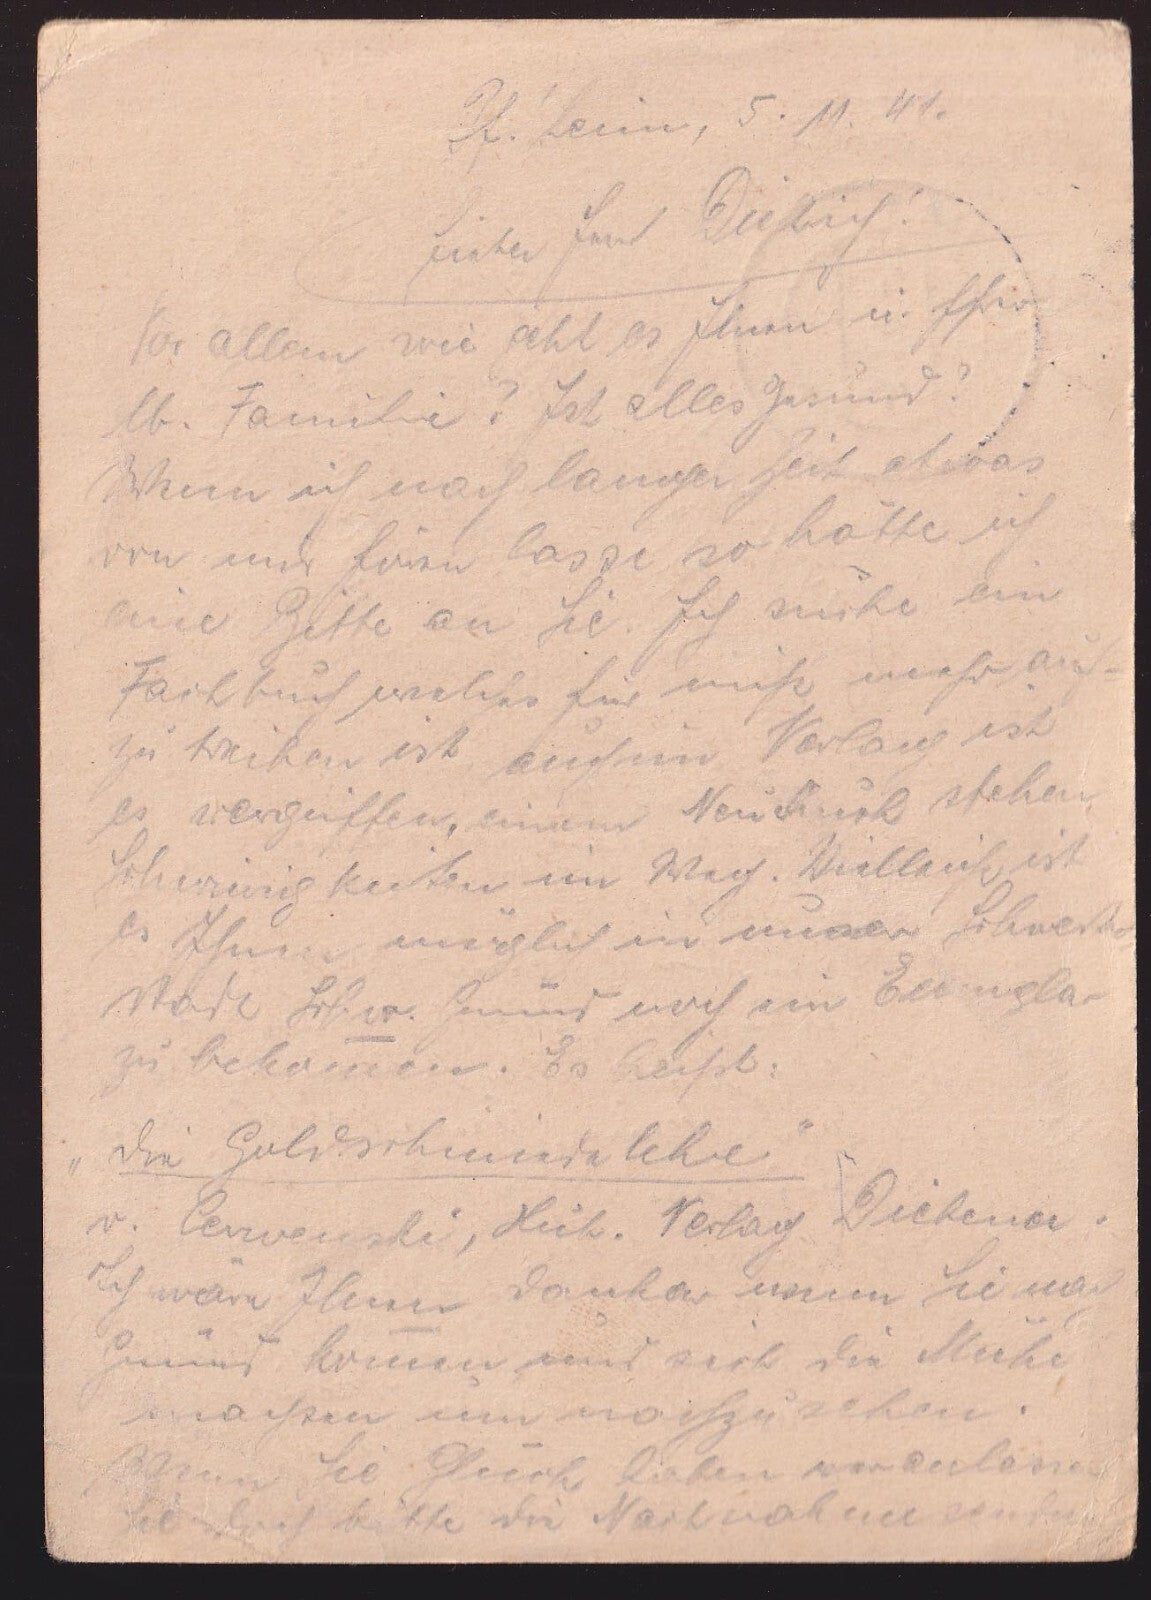 Pf'heim, 5. 11. 41.
Lieber Herr Dietrich!
Vor allem wie geht es Ihnen u. Ihrer
lb. Familie? Ist alles Gesund?
Wenn ich nach langer Zeit etwas
von mir hören lasse so hätte ich
eine Bitte an Sie. Ich suche ein
Fachbuch welches für mich mehr auf-
zu treiben ist auch im Verlag ist
es vergriffen, einem Neudruck stehen
Schwierigkeiten im Weg. Vielleicht ist
es Ihnen möglich in unserer Schwester
stadt Schw. Gmünd noch ein Exemplar
zu bekommen. Es heißt:
„die Goldschmiedelehre"
v. Cerwenski, Verlag Diebener.
Ich wäre Ihnen dankbar wenn Sie nach
Gmünd kommen und sich die Mühe
machen um nachzusehen.
Wenn Sie Glück haben veranlassen
Sie doch bitte die Nachnahme